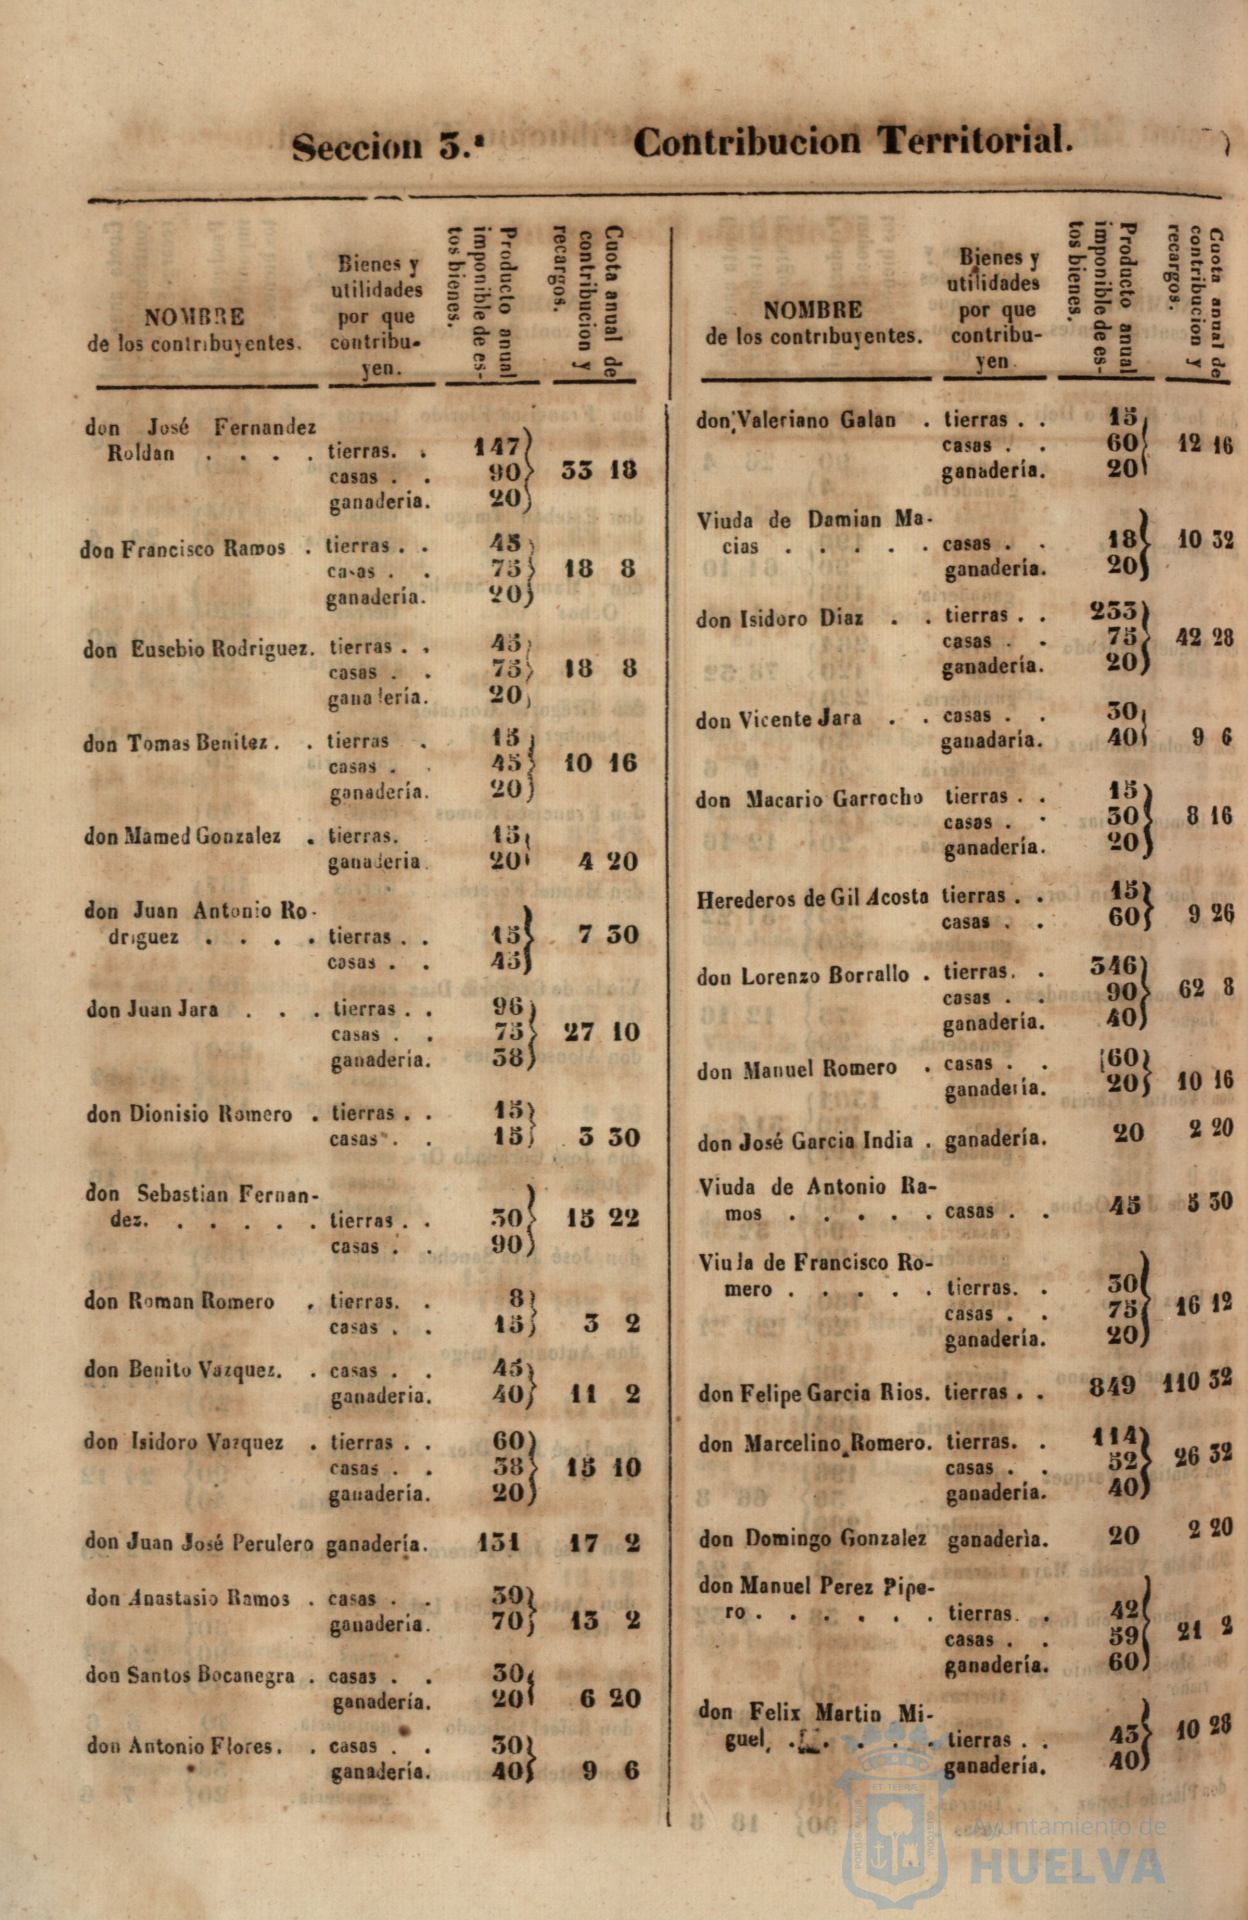 Seccion 3.ª Contribucion Territorial.
NOMBRE
de los contribuyentes.
Bienes y
utilidades
por que
contribu-
yen.
Producto anual
imponible de es-
tos bienes.
Cuota anual de
contribucion y
recargos.
don José Fernandez
Roldan . . . . tierras. . 147
casas . . 90 33 18
ganaderia. 20
don Francisco Ramos . tierras . . 45
casas . . 75 18 8
ganadería. 20
don Eusebio Rodriguez. tierras . . 45
casas . . 75 18 8
ganadería. 20
don Tomas Benitez . . tierras . 15
casas . . 45 10 16
ganadería. 20
don Mamed Gonzalez . tierras. 15
ganaderia. 20 4 20
don Juan Antonio Ro-
driguez . . . . tierras . . 15 7 30
casas . . 45
don Juan Jara . . . tierras . . 96
casas . . 75 27 10
ganadería. 38
don Dionisio Romero . tierras . . 15
casas . . 15 3 30
don Sebastian Fernan-
dez. . . . . . tierras . . 30 15 22
casas . . 90
don Roman Romero . tierras. . 8
casas . . 15 3 2
don Benito Vazquez. . casas . . 45
ganaderia. 40 11 2
don Isidoro Vazquez . tierras . . 60
casas . . 38 15 10
ganadería. 20
don Juan José Perulero ganadería. 131 17 2
don Anastasio Ramos . casas . . 30
ganadería. 70 13 2
don Santos Bocanegra . casas . . 30
ganadería. 20 6 20
don Antonio Flores. . casas . . 30
ganadería. 40 9 6
NOMBRE
de los contribuyentes.
Bienes y
utilidades
por que
contribu-
yen.
Producto anual
imponible de es-
tos bienes.
Cuota anual de
contribucion y
recargos.
don Valeriano Galan . tierras . . 15
casas . . 60 12 16
ganadería. 20
Viuda de Damian Ma-
cias . . . . . casas . . 18 10 32
ganadería. 20
don Isidoro Diaz . . tierras . . 233
casas . . 75 42 28
ganadería. 20
don Vicente Jara . . casas . . 30
ganadaría. 40 9 6
don Macario Garrocho tierras . . 15
casas . . 30 8 16
ganadería. 20
Herederos de Gil Acosta tierras . . 15
casas . . 60 9 26
don Lorenzo Borrallo . tierras. . 346
casas . . 90 62 8
ganadería. 40
don Manuel Romero . casas . . 60
ganadería. 20 10 16
don José Garcia India . ganadería. 20 2 20
Viuda de Antonio Ra-
mos . . . . . casas . . 45 5 30
Viuda de Francisco Ro-
mero . . . . . tierras. . 30
casas . . 75 16 12
ganadería. 20
don Felipe Garcia Rios. tierras . . 849 110 32
don Marcelino Romero. tierras. . 114
casas . . 52 26 32
ganadería. 40
don Domingo Gonzalez ganadería. 20 2 20
don Manuel Perez Pipe-
ro . . . . . . tierras. . 42
casas . . 59 21 2
ganadería. 60
don Felix Martin Mi-
guel, . . . . . tierras . . 43 10 28
ganadería. 40
Ayuntamiento de
HUELVA